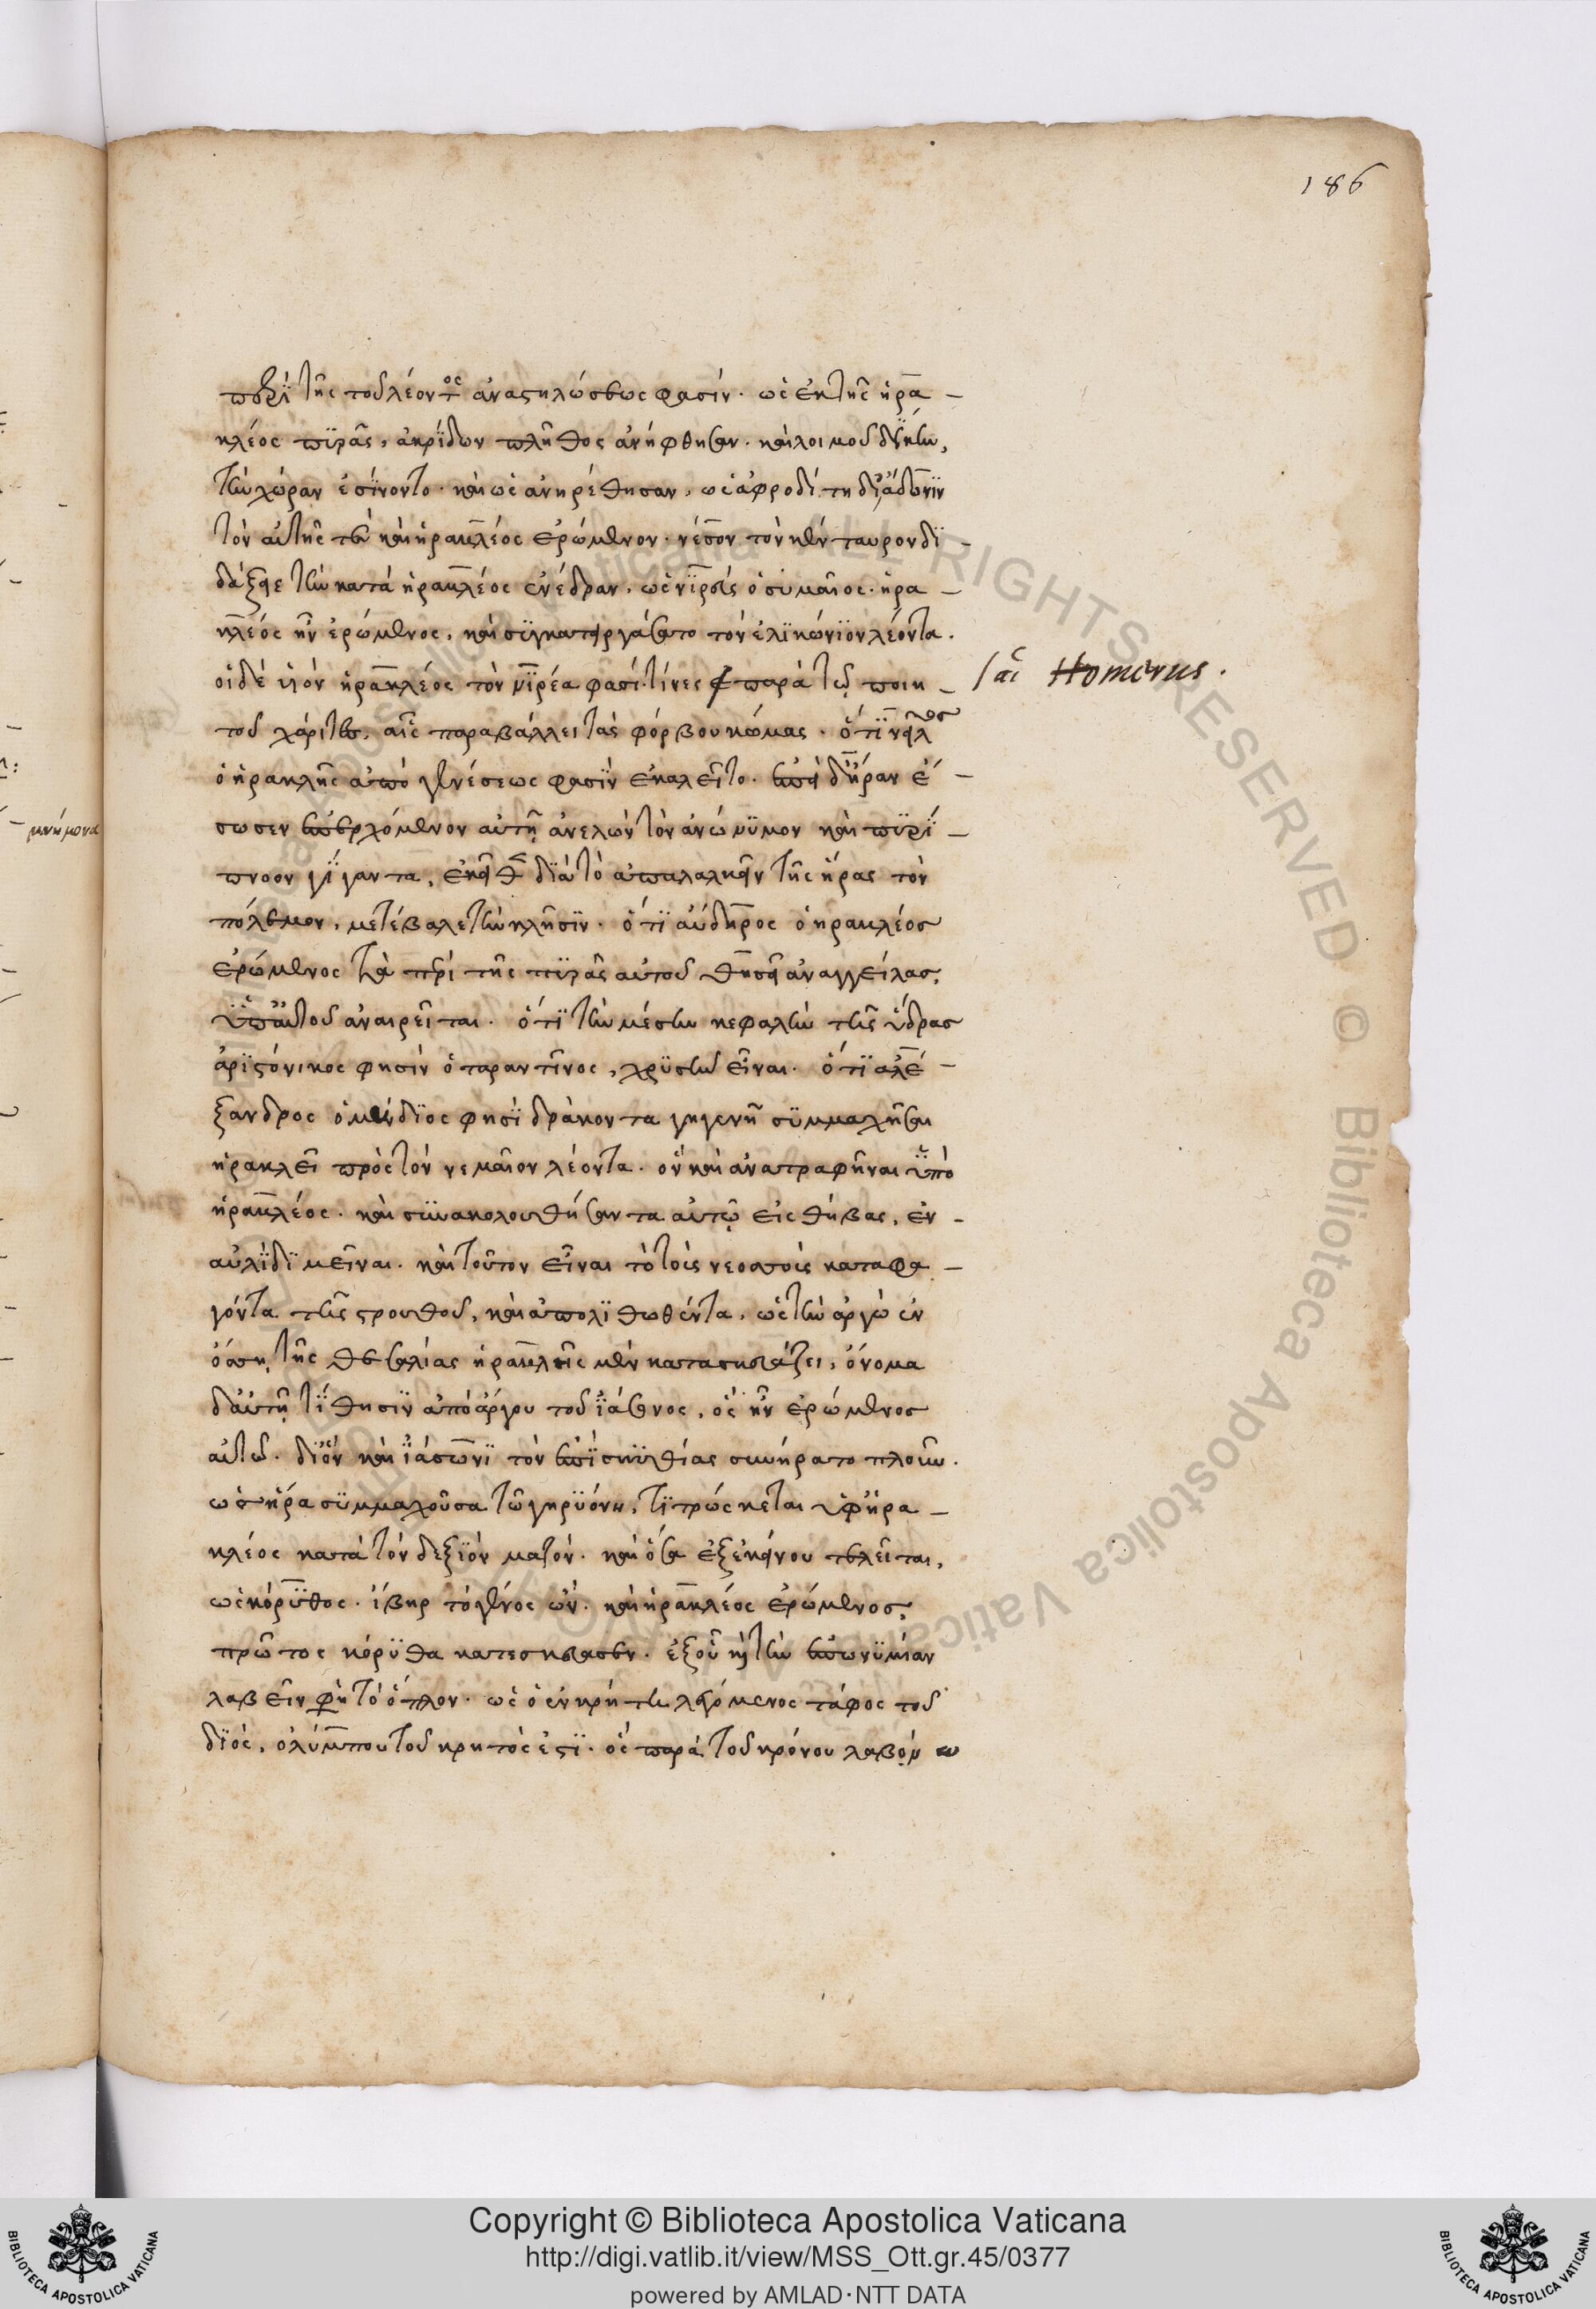 186
περὶ τῆς τοῦ λέοντος ἀναστηλώσεως φασίν. ὡς ἐκ τῆς ἡρα-
κλέος πυρᾶς, ἀκρίδων πλῆθος ἀνήφθησαν. καὶ λοιμοῦ δίκην,
τὴν χώραν ἐσίνοντο. καὶ ὡς ἀνηρέθησαν, ὡς ἀφροδίτη δι' ἄδωνιν
τὸν αὐτῆς τὲ καὶ ἡρακλέος ἐρώμενον. νέσον τὸν κέν ταυρον δι-
δάξαι τὴν κατὰ ἡρακλέος ἐνέδραν. ὡς νιρεύς ὁ συμαῖος. ἡρα-
κλέος ἦν ἐρώμενος, καὶ συγκατηργάσατο τὸν ἑλικώνιον λέοντα.
οἱ δὲ υἱὸν ἡρακλέος τὸν νιρέα φασί τινες παρὰ τῷ ποιη-
τοῦ χάριτες, αἷς παραβάλλει τὰς φόρβου κόμας. ὅτι νεῖλος
ὁ ἡρακλῆς ἀπὸ γενέσεως φασὶν ἐκαλεῖτο. ἐπεὶ δ' ἥραν ἔ-
σωσεν ἐπερχόμενον αὐτῇ ἀνελὼν τὸν ἀνώνυμον καὶ πυρί-
πνοον γίγαντα, ἐκεῖθεν διὰ τὸ ἀπαλαλκεῖν τῆς ἥρας τὸν
πόλεμον, μετέβαλε τὴν κλῆσιν. ὅτι αὔδηρος ὁ ἡρακλέος
ἐρώμενος τὰ περὶ τῆς πυρᾶς αὐτοῦ θησεῖ ἀναγγείλας,
ὑπ' αὐτοῦ ἀναιρεῖται. ὅτι τὴν μέσην κεφαλὴν τῆς ὕδρας
ἀριστόνικος φησὶν ὁ ταραντῖνος, χρυσῆν εἶναι. ὅτι ἀλέ-
ξανδρος ὁ μύνδιος φησὶ δράκοντα γηγενῆ συμμαχῆσαι
ἡρακλεῖ πρὸς τὸν νεμαῖον λέοντα. ὃν καὶ ἀνατραφῆναι ὑπὸ
ἡρακλέος. καὶ συνακολουθήσαντα αὐτῷ εἰς θήβας, ἐν-
αὐλίδι μεῖναι. καὶ τοῦτον εἶναι τὸ τοὺς νεοσσοὺς καταφα-
γόντα τῆς στρουθοῦ, καὶ ἀπολιθωθέντα. ὡς τὴν ἀργὼ ἐν
ὄσσῃ τῆς θεσσαλίας ἡρακλῆς μὲν κατασκευάζει, ὄνομα
δ' αὐτῇ τίθησιν ἀπὸ ἄργου τοῦ ἰάσονος, ὃς ἦν ἐρώμενος
αὐτῷ. δι' ὃν καὶ ἰάσωνι τὸν ἐπὶ σκυθίας συνήρατο πλοῦν.
ὡς ἥρα συμμαχοῦσα τῷ γηρυόνῃ, τιτρώσκεται ὑφ' ἡρα-
κλέος κατὰ τὸν δεξιὸν μαζόν. καὶ ὅσα ἐξ ἐκείνου τελεῖται,
ὡς κόρυθος. ἴβηρ τὸ γένος ὤν. καὶ ἡρακλέος ἐρώμενος,
πρῶτος κόρυθα κατεσκεύασεν. ἐξ οὗ καὶ τὴν ἐπωνυμίαν
λαβεῖν φησὶ τὸ ὅπλον. ὡς ὁ ἐν κρήτῃ λεγόμενος τάφος τοῦ
διός, ὀλύμπου τοῦ κρητὸς ἐστι. ὃς παρὰ τοῦ κρόνου λαβὼν
Homerus.
μνήμονα
Copyright © Biblioteca Apostolica Vaticana
http://digi.vatlib.it/view/MSS_Ott.gr.45/0377
powered by AMLAD·NTT DATA